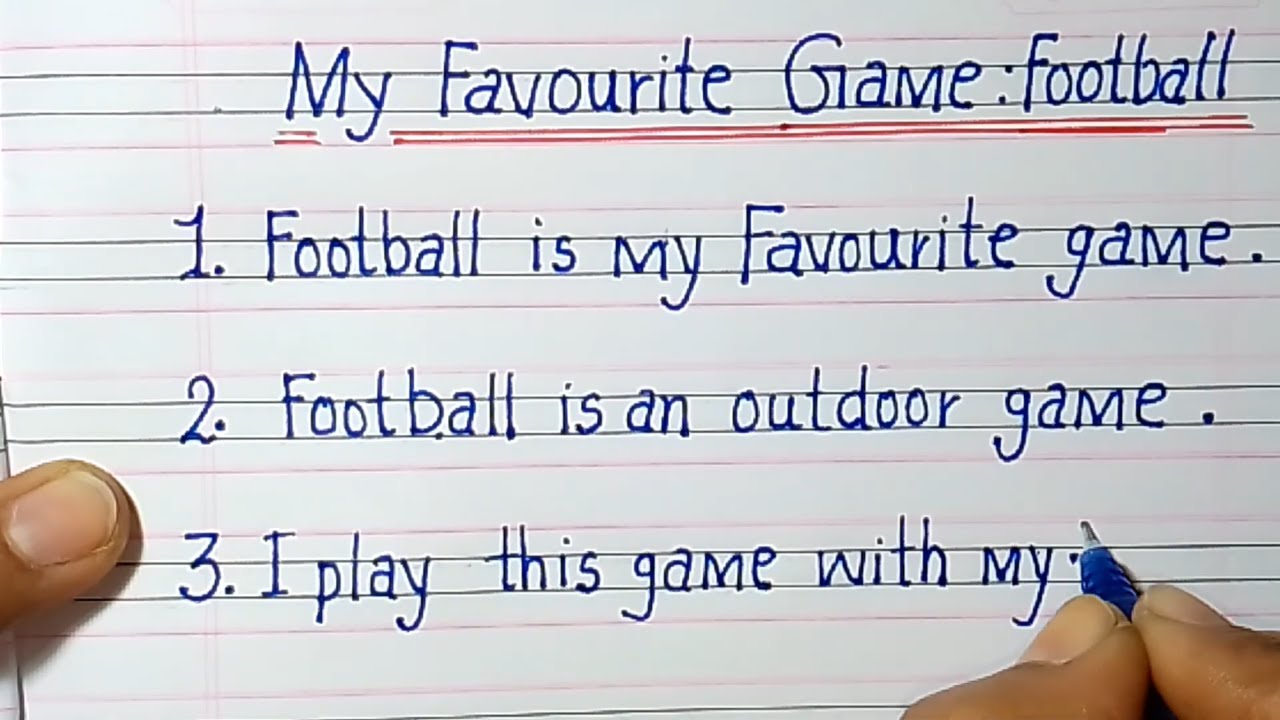 My Favourite Game: Football
1. Football is my Favourite game.
2. Football is an outdoor game.
3. I play this game with my